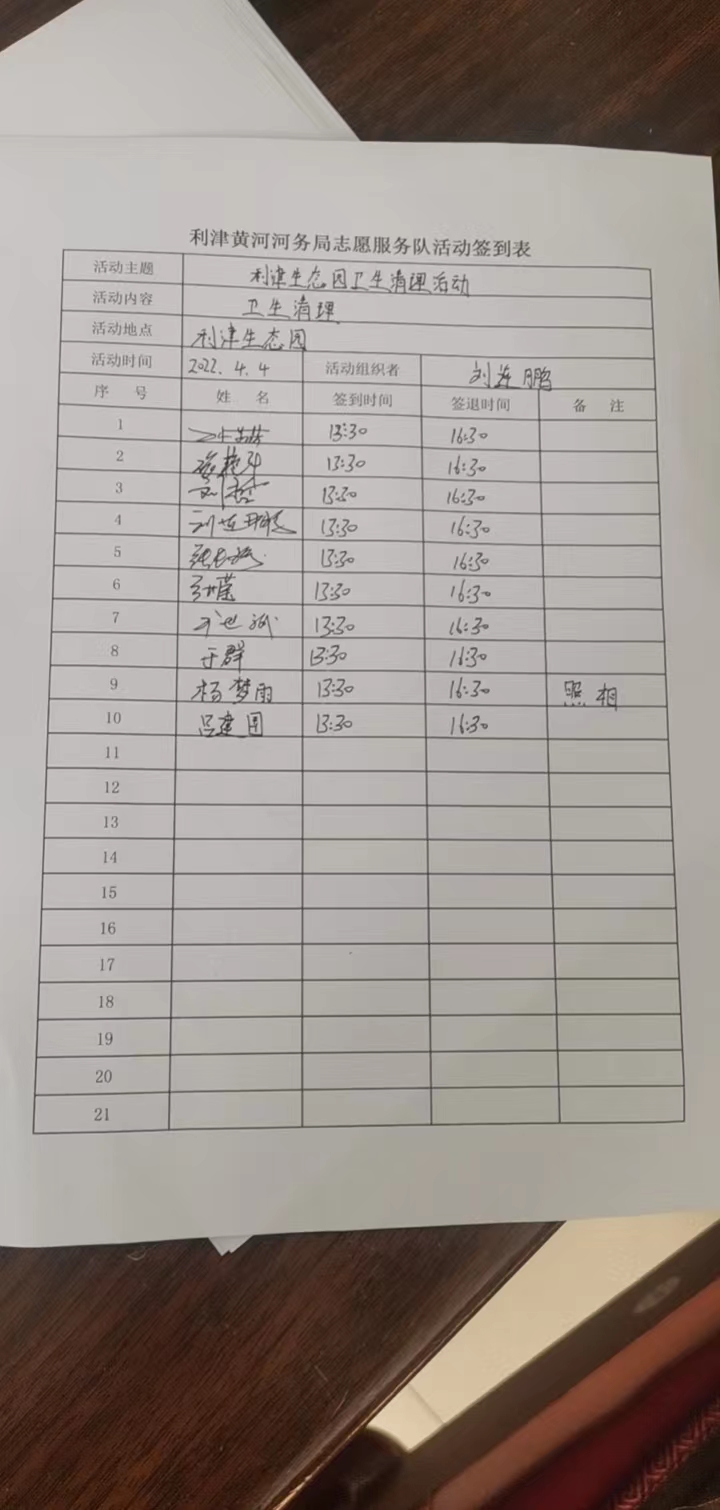 利津黄河河务局志愿服务队活动签到表
活动主题 利津生态园卫生清理活动
活动内容 卫生清理
活动地点 利津生态园
活动时间 2022.4.4 活动组织者 刘连鹏
序 号 姓 名 签到时间 签退时间 备 注
1 13:30 16:30
2 13:30 16:30
3 13:30 16:30
4 刘连鹏 13:30 16:30
5 13:30 16:30
6 13:30 16:30
7 13:30 16:30
8 于群 13:30 16:30
9 杨梦雨 13:30 16:30 照相
10 吕建国 13:30 16:30
11
12
13
14
15
16
17
18
19
20
21